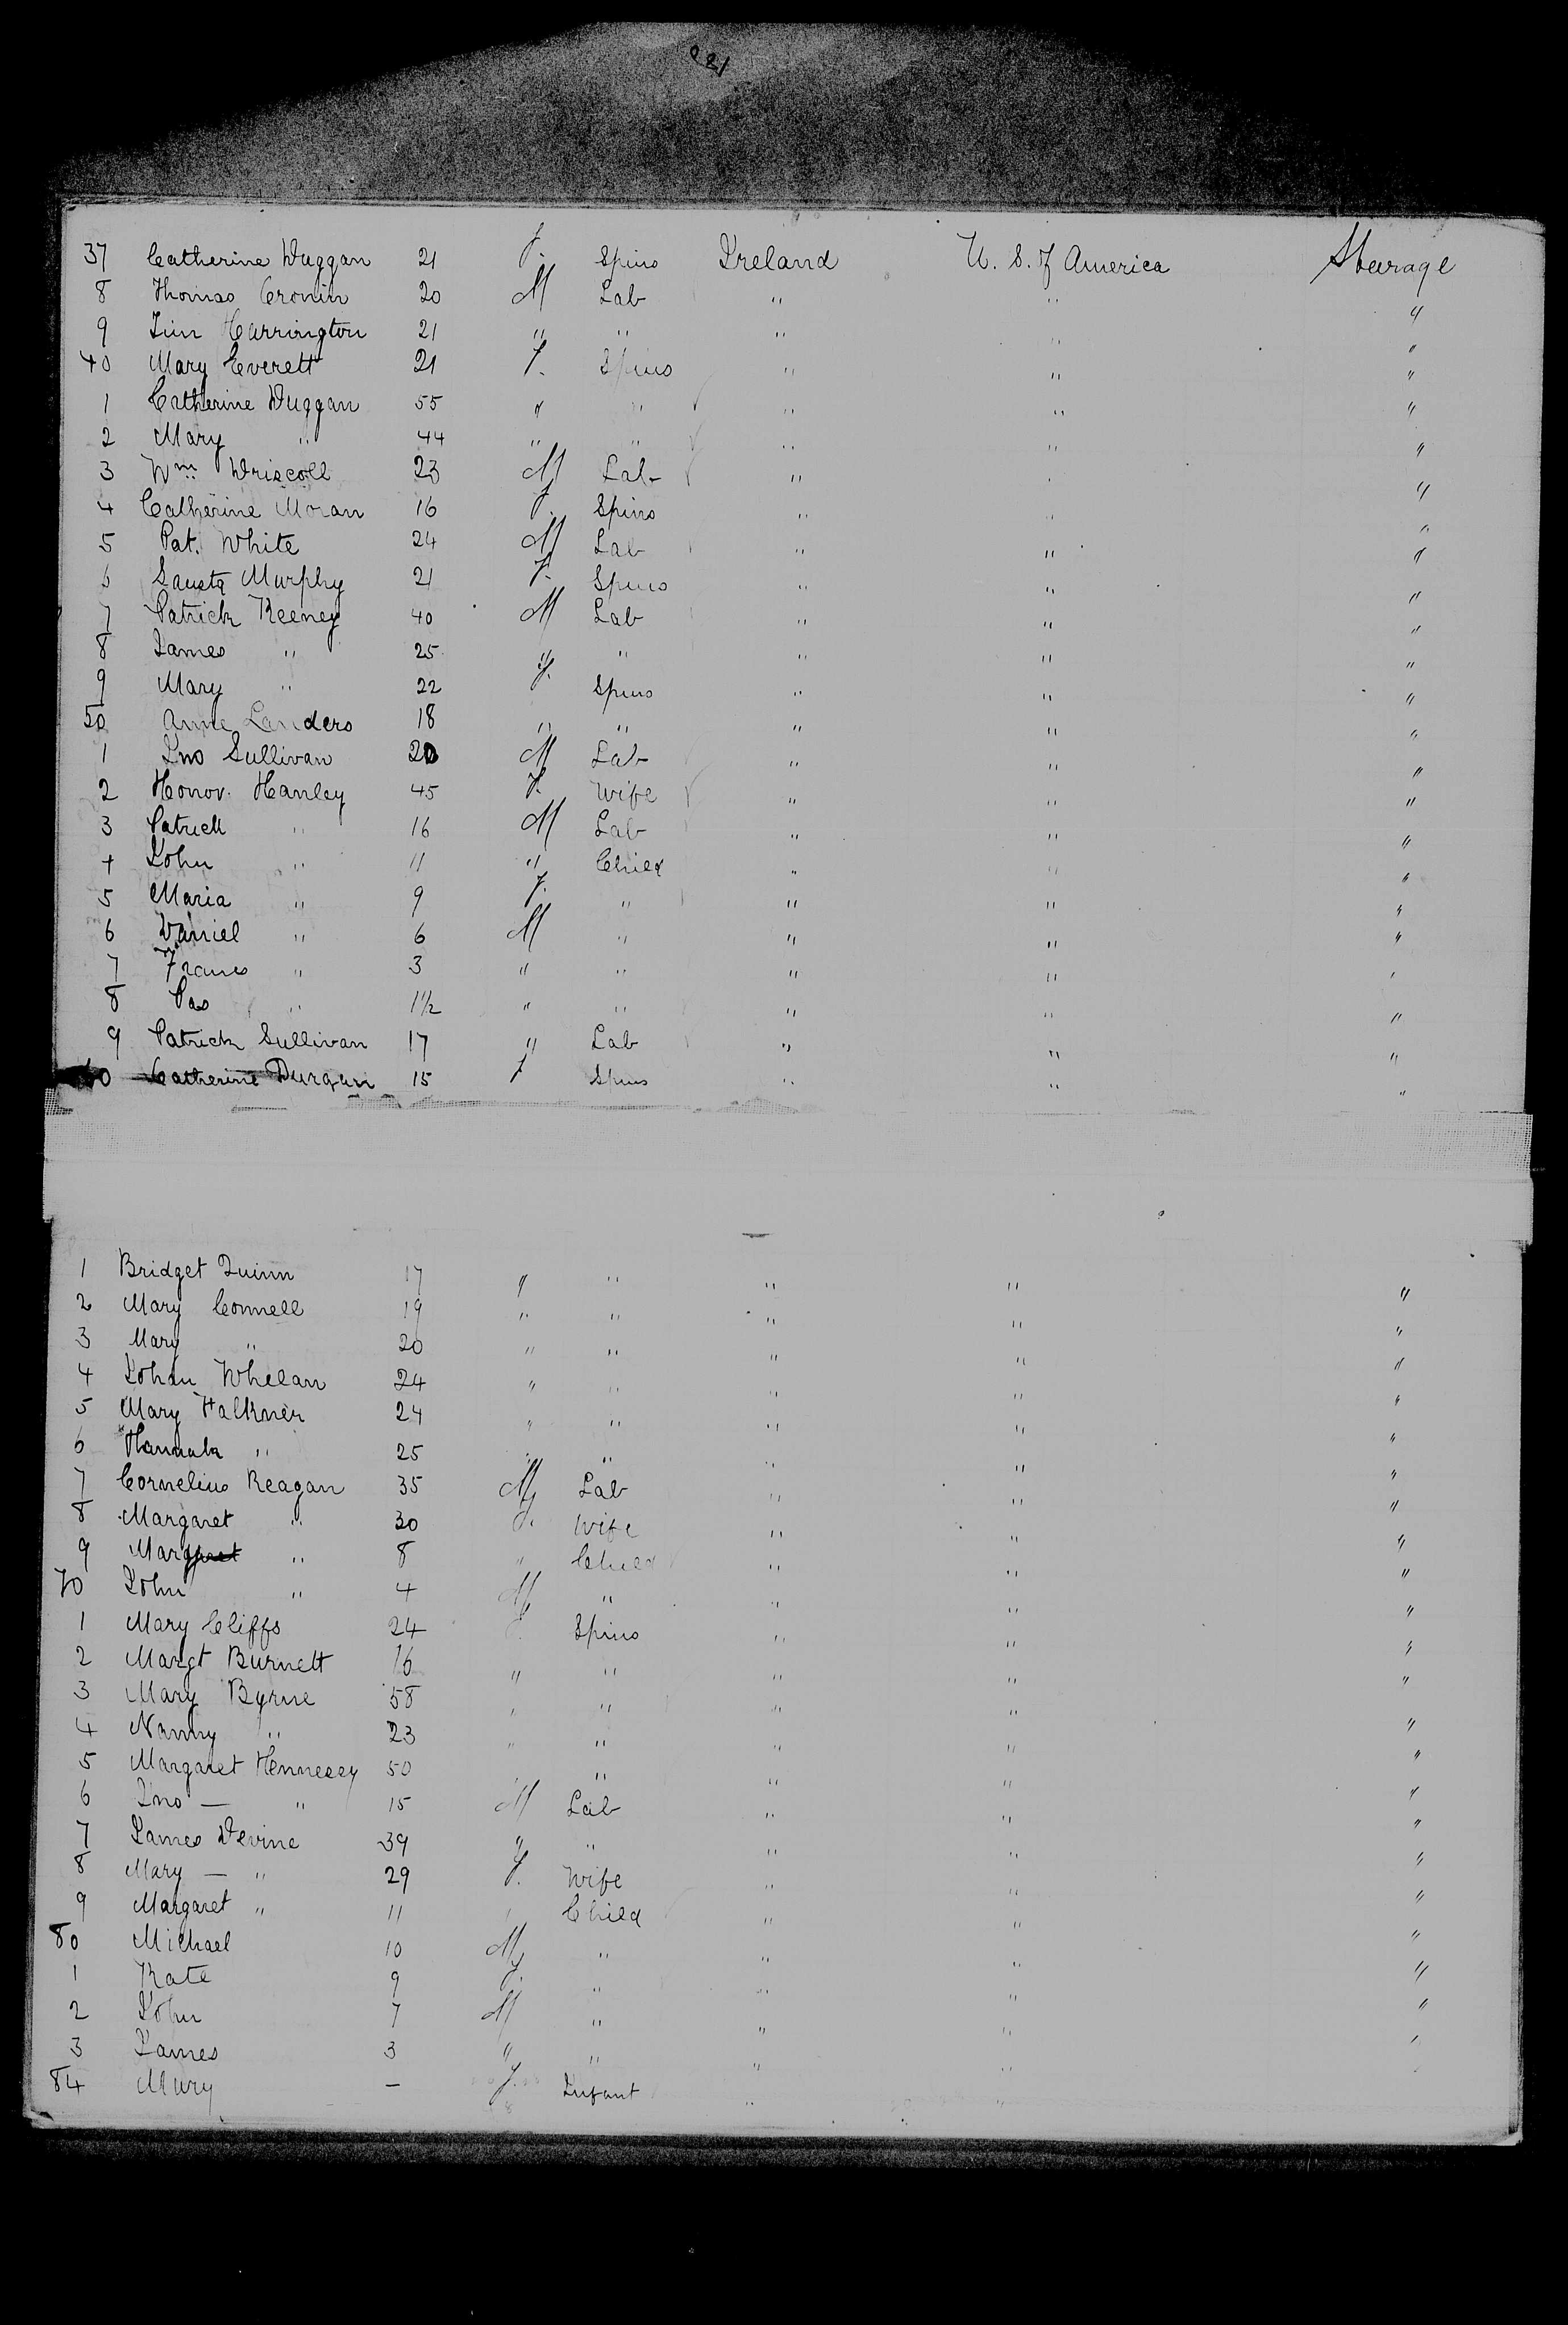 180
37 Catherine Duggan 21 F. Spins Ireland U. S. of America Steerage
8 Thomas Cronin 20 M Lab " " "
9 Jim Harrington 21 " " " " "
40 Mary Everett 21 F. Spins " " "
1 Catherine Duggan 55 " " " " "
2 Mary " 44 " " " " "
3 Wm Driscoll 23 M Lab " " "
4 Catherine Moran 16 F. Spins " " "
5 Pat. White 24 M Lab " " "
6 Murphy 21 F. Spins " " "
7 Patrick Keeney 40 M Lab " " "
8 James " 25 " " " " "
9 Mary " 22 F. Spins " " "
50 Anne Landers 18 " " " " "
1 Jno Sullivan 20 M Lab " " "
2 Honor. Hanley 45 F. Wife " " "
3 Patrick " 16 M Lab " " "
4 John " 11 " Child " " "
5 Maria " 9 F. " " " "
6 Daniel " 6 M " " " "
7 Francs " 3 " " " " "
8 Pas " 1½ " " " " "
9 Patrick Sullivan 17 " Lab " " "
60 Catherine Durgan 15 F Spins " " "
1 Bridget Quinn 17 " " " " "
2 Mary Connell 19 " " " " "
3 Mary " 20 " " " " "
4 Johan Whelan 24 " " " " "
5 Mary Falkner 24 " " " " "
6 Hannah " 25 " " " " "
7 Cornelius Reagan 35 M Lab " " "
8 Margaret " 30 F. Wife " " "
9 Margaret " 8 " Child " " "
70 John " 4 M " " " "
1 Mary Cliffs 24 F. Spins " " "
2 Margt Burnett 16 " " " " "
3 Mary Byrne 58 " " " " "
4 Nanny " 23 " " " " "
5 Margaret Hennessy 50 " " " " "
6 Jno — " 15 M Lab " " "
7 James Devine 39 " " " " "
8 Mary — " 29 F. Wife " " "
9 Margaret " 11 " Child " " "
80 Michael 10 M " " " "
1 Kate 9 F. " " " "
2 John 7 M " " " "
3 James 3 " " " " "
84 Mary — F. Infant " "